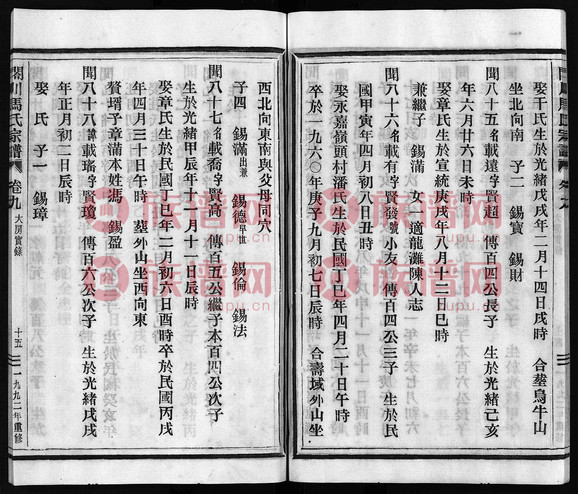 娶干氏生於光緒戊戌年二月十四日戌時 合塟烏牛山
坐北向南 子二 錫寶 錫財
聞八十五名載遠字賢超 傳百四公長子 生於光緒己亥
年六月廿六日未時
娶章氏生於宣統庚戌年八月十三日巳時
兼繼子 錫滿 女一適龍灘陳人志
聞八十六名載有字賢發號小友 傳百四公三子 生於民
國甲寅年四月初八日丑時
娶永嘉嶺頭村潘氏生於民國丁巳年四月二十日午時
卒於一九六〇年庚子九月初七日辰時 合壽域外山坐
西北向東南與父母同穴
子四 錫滿出兼 錫德早世 錫倫 錫法
聞八十七名載喬字賢高 傳百五公繼子本百四公次子
生於光緒甲辰年十二月十一日辰時
娶章氏生於民國丁巳年二月初六日酉時卒於民國丙戌
年四月三十日午時 塟外山坐西向東
贅壻子章滿本姓馮 錫盈
聞八十八諱載瑤字賢瓊 傳百六公次子 生於光緒戊戌
年正月初二日辰時
娶 氏 子一 錫璋
閣川馬氏宗譜 卷九 大房實錄 十五 一九九二年重修
族譜网
zupu.cn